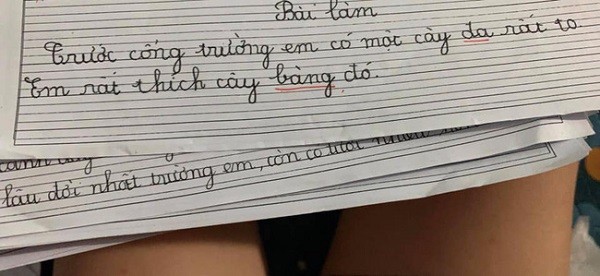 Bài làm
Trước cổng trường em có một cây đa rất to.
Em rất thích cây bàng đó.
lâu đời nhất trường em, còn có